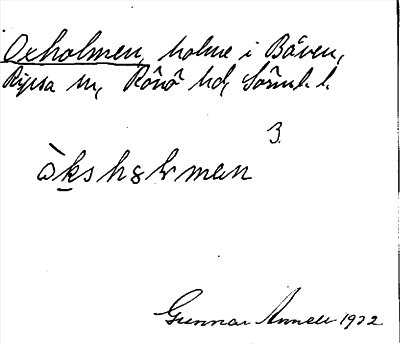 Oxholmen, holme i Båven,
Ripsa sn, Rönö hd, Sörml. l.
3
òksh8lmen
Gunnar Annell 1932